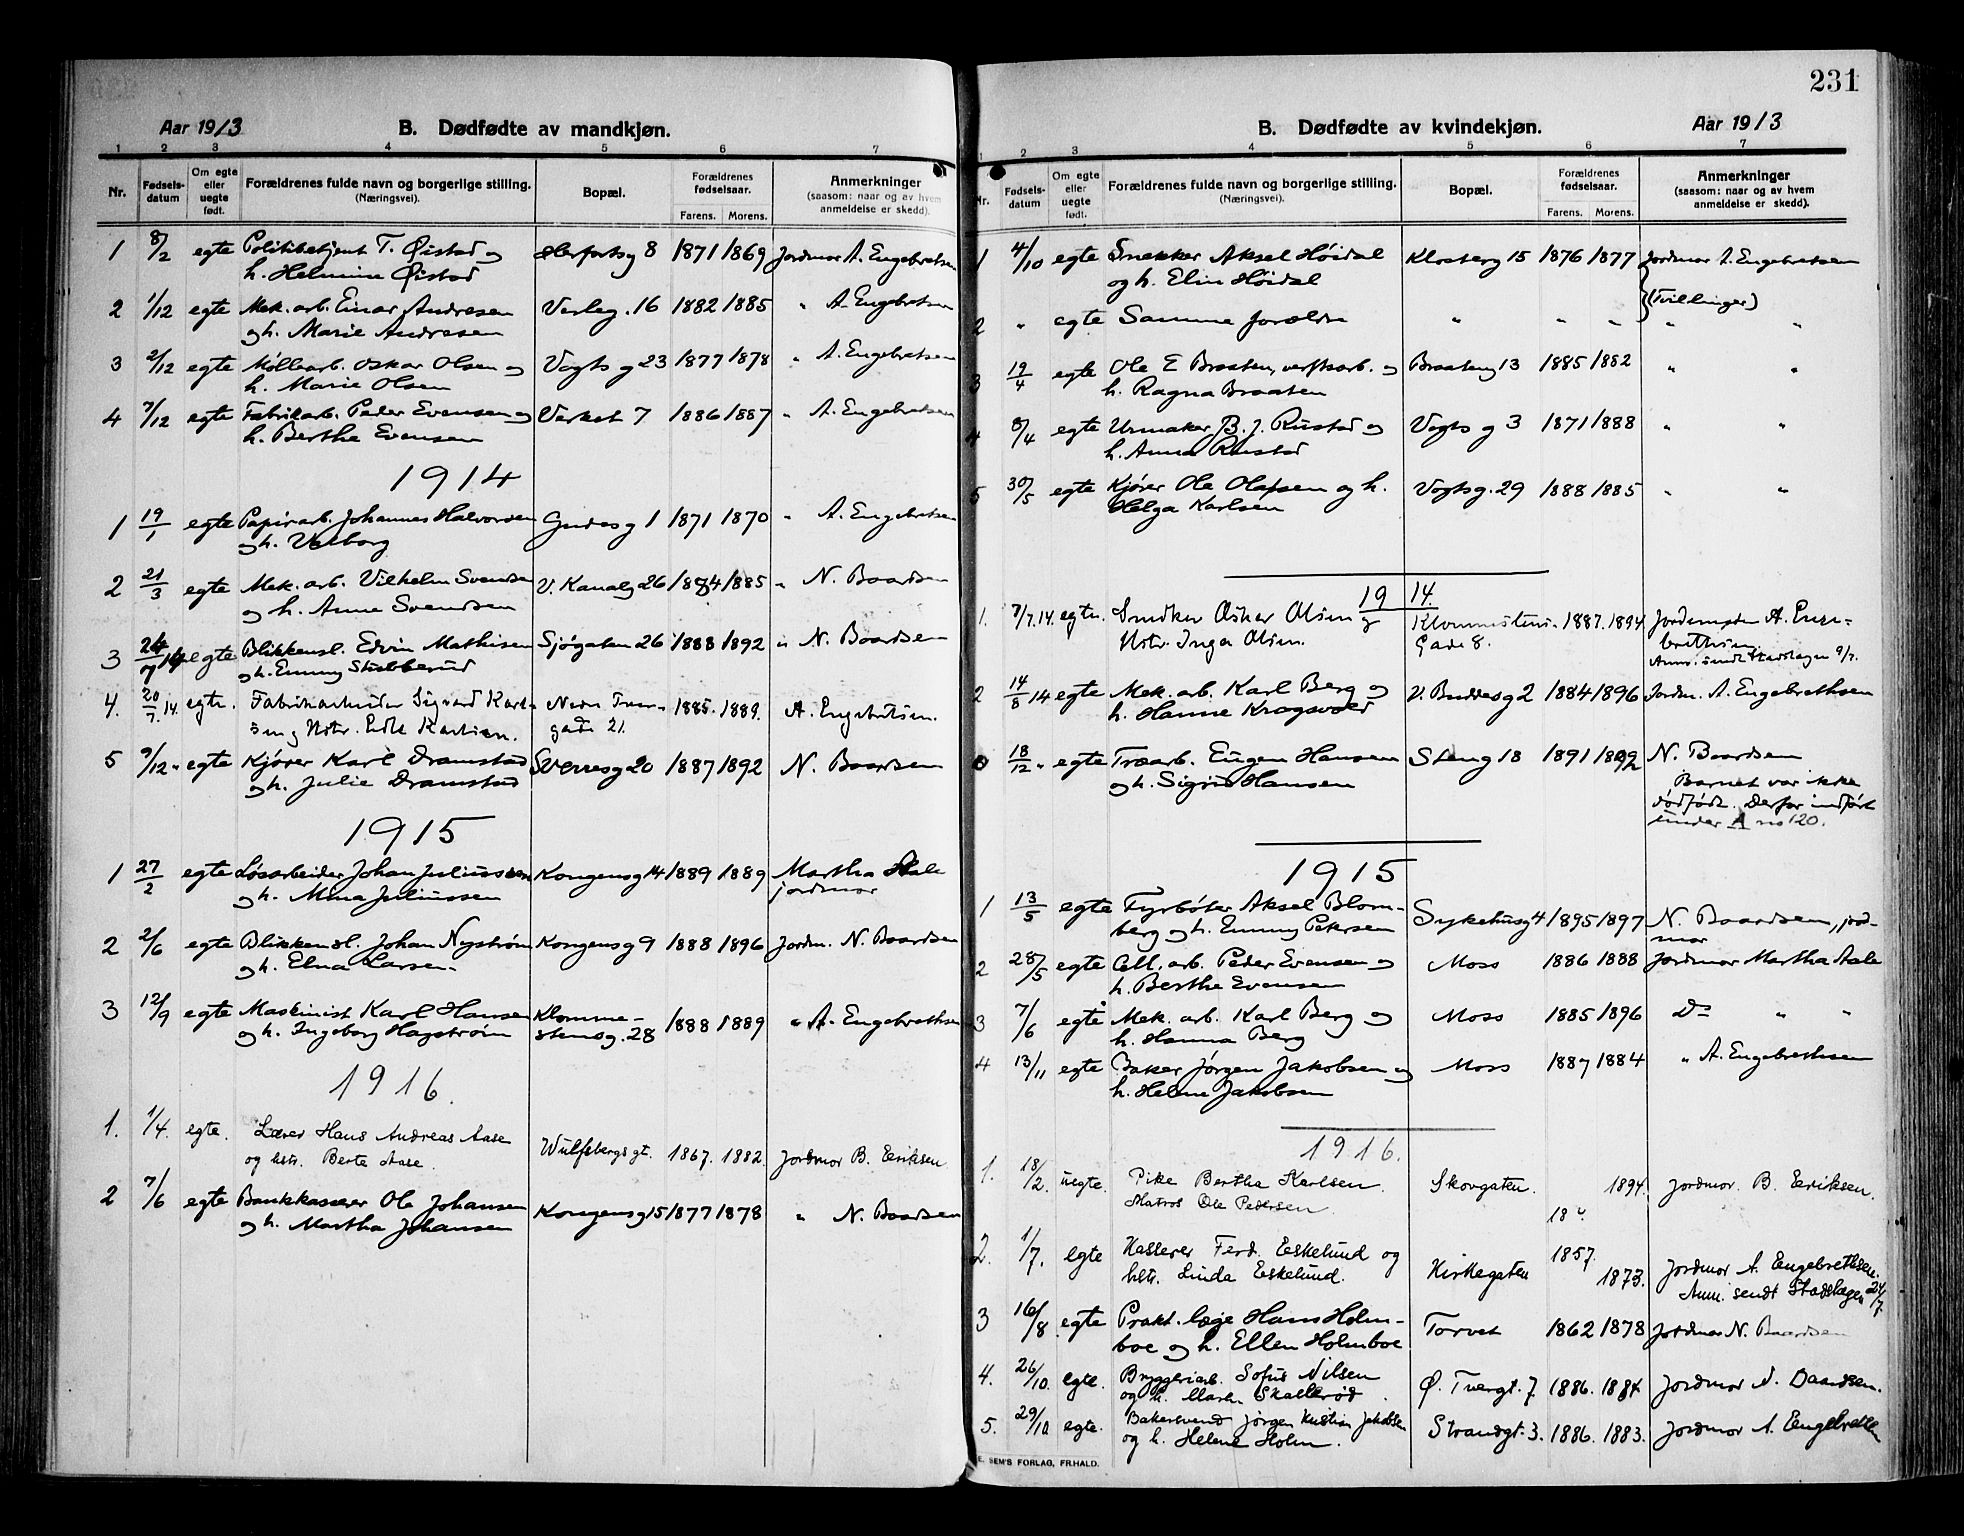 Aar 1913 B. Dødfødte av mandkjøn.
1 2 3 4 5 6 7
Nr. Fødsels-datum Om egte eller uegte født. Forældrenes fulde navn og borgerlige stilling. (Næringsvei). Bopæl. Forældrenes fødselsaar. Farens. Morens. Anmerkninger (saasom: naar og av hvem anmeldelse er skedd).
1 8/2 egte Politibetjent T. Øistad og 1871 1869 Jordmor A. Engebretsen
h. Helmine Øistad
2 1/12 egte Mek. arb. Einar Andresen Verleg. 16 1882 1885 " A. Engebretsen
og h. Marie Andresen
3 2/12 egte Møllearb. Oskar Olsen og Vogts g 23 1877 1878 " A. Engebretsen
h. Marie Olsen
4 7/12 egte Fabrikarb. Peder Evensen og Verket 7 1886 1887 " A. Engebretsen
h. Berthe Evensen
1914
1 19/1 egte Papirarb. Johannes Halvorsen Gudesg 1 1871 1870 " A. Engebretsen
og h. Valborg
2 21/3 egte Mek. arb. Vilhelm Svendsen V. Kanalg 26 1884 1885 " N. Baardsen
og h. Anne Svendsen
3 egte Blikkensl. Edvin Mathisen Sjøgaten 26 1888 1892 " N. Baardsen
og h. Emmy Stubberud
4. 20/7. 14. egte. Fabrikarbeider Sigvard Karl- Nedre Tver- 1885. 1889. A. Engebretsen.
sen og Hstr. Edle Karlsen. gade 21.
5 9/12 " egte Kjører Karl Dramstad Sverresg 20 1887 1892 N. Baardsen
og h. Julie Dramstad
1915
1 27/2 egte Løsarbeider Johan Juliussen Kongensg 14 1889 1889 Martha Aale
og h. Mina Juliussen jordmor
2 2/6 egte Blikkensl. Johan Nystrøm Kongensg 9 1888 1896 Jordm. N. Baardsen
og h. Elna Larsen
3 12/9 egte Maskinist Karl Hansen Klomme- 1888 1889 " A. Engebrethsen
og h. Ingeborg Hagstrøm stensg. 28
1916.
1. 1/4. egte. Lærer Hans Andreas Aase Wulfsbergs gt. 1867. 1882. Jordmor B. Eriksen.
og hstr. Berte Aase.
2 7/6 egte Bankkasserer Ole Johansen Kongensg 15 1877 1878 " N. Baardsen
og h. Martha Johansen
231
B. Dødfødte av kvindekjøn. Aar 1913
1 2 3 4 5 6 7
Nr. Fødsels-datum Om egte eller uegte født. Forældrenes fulde navn og borgerlige stilling. (Næringsvei). Bopæl. Forældrenes fødselsaar. Farens. Morens. Anmerkninger (saasom: naar og av hvem anmeldelse er skedd).
1 4/10 egte Snekker Aksel Høidal Klosterg 15 1876 1877 Jordmor A. Engebretsen
og h. Elin Høidal (Tvillinger)
2 " egte Samme foreldre " " " " "
3 19/4 egte Ole E Braaten, verftsarb. og Braateng 13 1885 1882 " "
h. Ragna Braaten
4 8/4 egte Urmaker B. J. Rustad og Vogts g 3 1871 1888 " "
h. Anna Rustad
5 30/5 egte Kjører Ole Olafsen og h. Vogtsg. 29 1888 1885 " "
Helga Karlsen
1914.
1. 7/7. 14. egte. Snedker Osker Olsen og Klommestens- 1887. 1894 Jordemoder A. Enge-
Hstr. Inga Olsen. Gade 8. brethsen.
Anm. sendt Stadslægen 9/7.
2 14/8 14 egte Mek. arb. Karl Berg og V. Buddesg 2 1884 1896 Jordm. A. Engebrethsen
h. Hanne Kragsvold
18/12 " egte Træarb. Eugen Hansen Steng 18 1891 1892 N. Baardsen
og h. Sigrid Hansen Barnet var ikke
dødfødt. Derfor indført
under A no 120.
1915
1 13/5 egte Fyrbøter Aksel Blom- Sykehusg 4 1895 1897 N. Baardsen, jord-
berg og h. Emmy Petersen mor
2 28/5 egte Cell. arb. Peder Evensen og Moss 1886 1888 Jordmor Martha Aale
h. Berthe Evensen
3 7/6 egte Mek. arb. Karl Berg og Moss 1885 1896 Do " "
h. Hanna Berg
4 13/11 egte Baker Jørgen Jakobsen og Moss 1887 1884 " A. Engebrethsen
h. Helene Jakobsen
1916.
1. 18/2. uegte. Pike Bertha Karlsen. Skovgaten. 1894. Jordmor. B. Eriksen.
Matros Ole Pedersen. 18 "
2. 1/7. egte Kasserer Ferd. Eskelund og Kirkegaten 1857. 1873. Jordmor A. Engebrethsen.
hstr. Linda Eskelund. Anm. sendt Stadslægen 24/7.
3 16/8 egte Prakt. læge Hans Holm- Torvet 1862 1878 Jordmor N. Baardsen
boe og h. Ellen Holmboe
4. 26/10. egte. Bryggeriarb. Sofus Nilsen Ø. Tvergt. 7. 1886. 1884 Jordmor N. Baardsen.
og h. Marh. Skallerød.
5. 29/10. egte. Bakersvend Jørgen Kristian Jakobsen Strandgt. 3. 1886. 1883. Jordmor A. Engebretsen
og h. Helene Holm.
E. SEM'S FORLAG, FR.HALD.